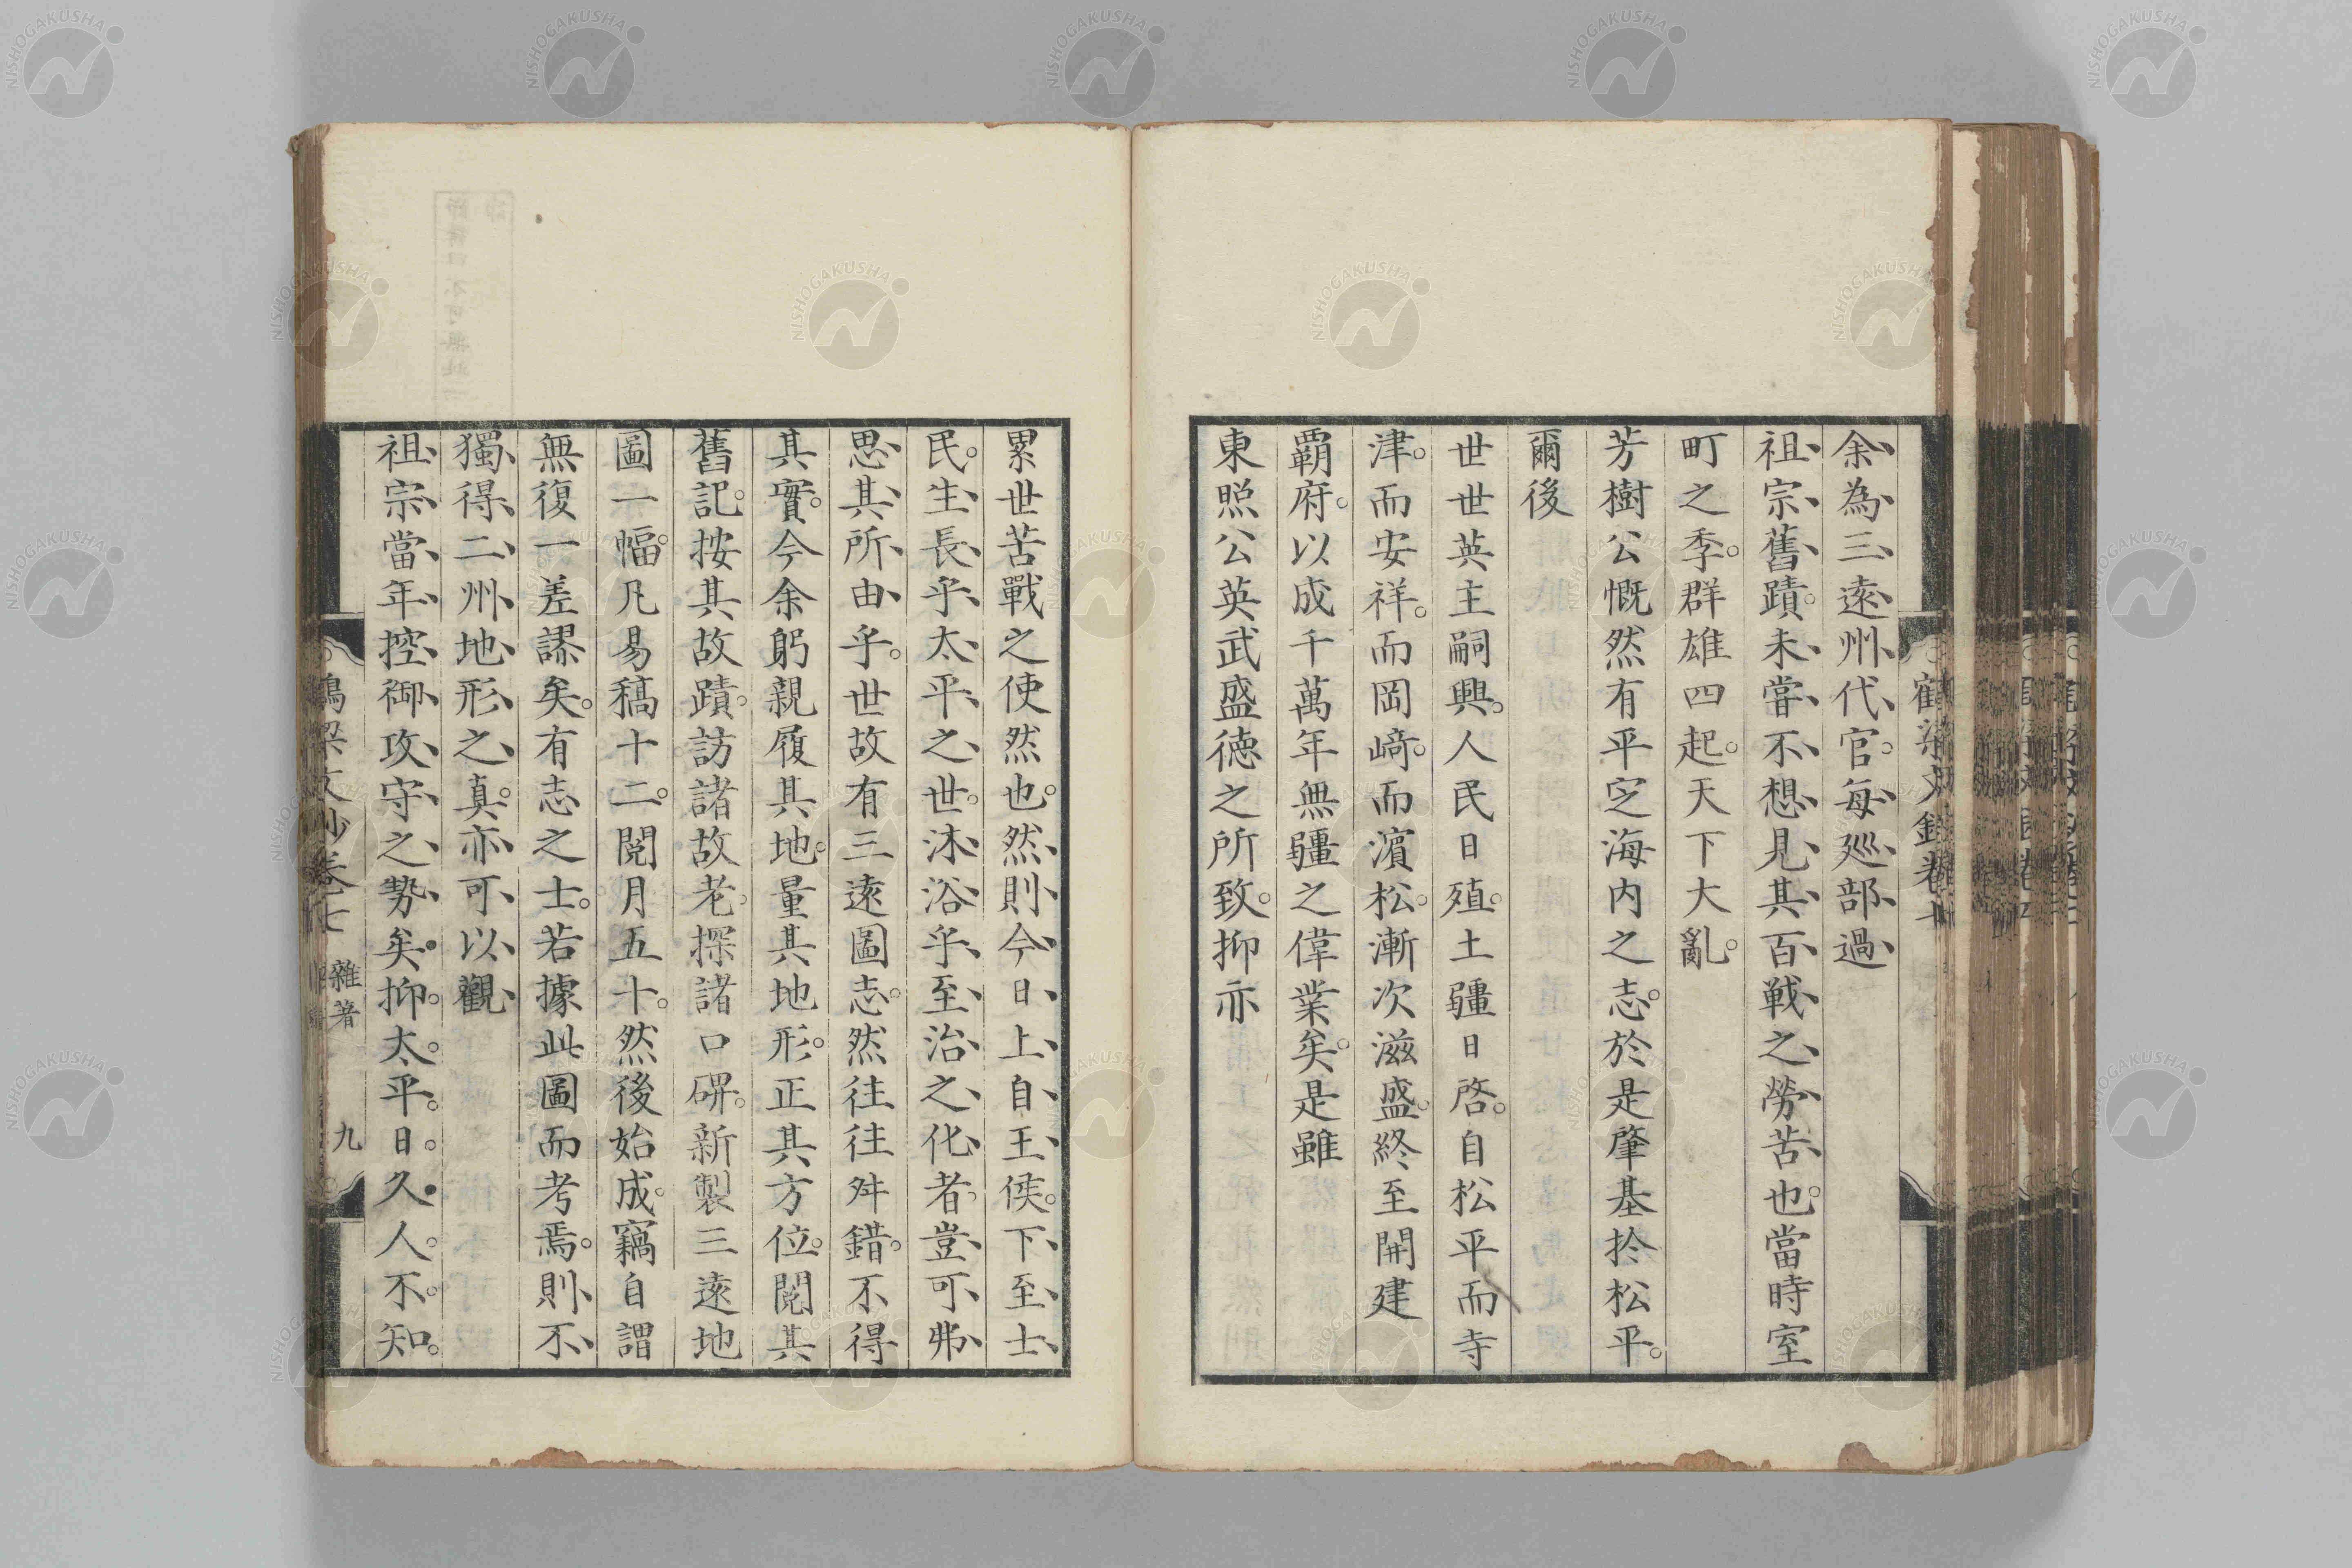 余為三遠州代官。每巡部過
祖宗舊蹟。未嘗不想見其百戰之勞苦也。當時室
町之季。群雄四起。天下大亂。
芳樹公慨然有平定海內之志。於是肇基於松平。
爾後
世世英主嗣興。人民日殖。土疆日啓。自松平而寺
津。而安祥。而岡崎。而濱松。漸次滋盛。終至開建
霸府。以成千萬年無疆之偉業矣。是雖
東照公英武盛德之所致。抑亦
累世苦戰之使然也。然則今日上自王侯。下至士
民。生長乎太平之世。沐浴乎至治之化者。豈可弗
思其所由乎。世故有三遠圖志。然往往舛錯。不得
其實。今余躬親履其地。量其地形。正其方位。閱其
舊記。按其故蹟。訪諸故老。探諸口碑。新製三遠地
圖一幅。凡易稿十二。閱月五十。然後始成。竊自謂
無復一差謬矣。有志之士。若據此圖而考焉。則不
獨得二州地形之真。亦可以觀
祖宗當年控御攻守之勢矣。抑太平日久。人不知。
鶴梁文鈔卷七 雜著 九